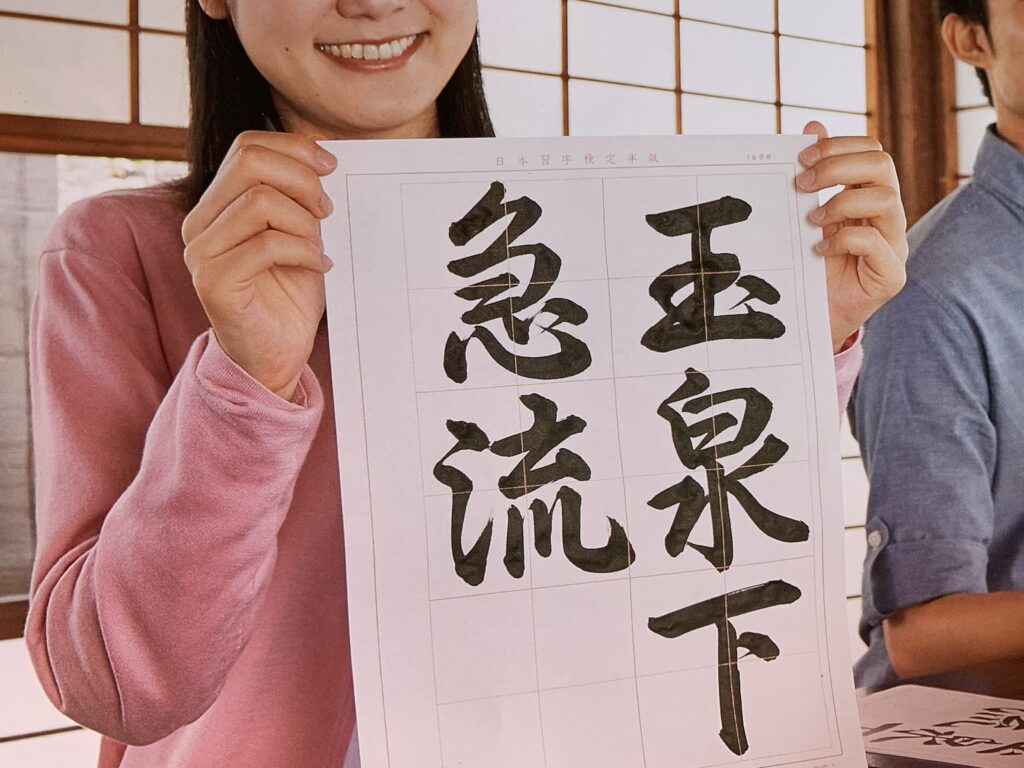 日本習字検定半紙
(6字用)
玉泉下
急流